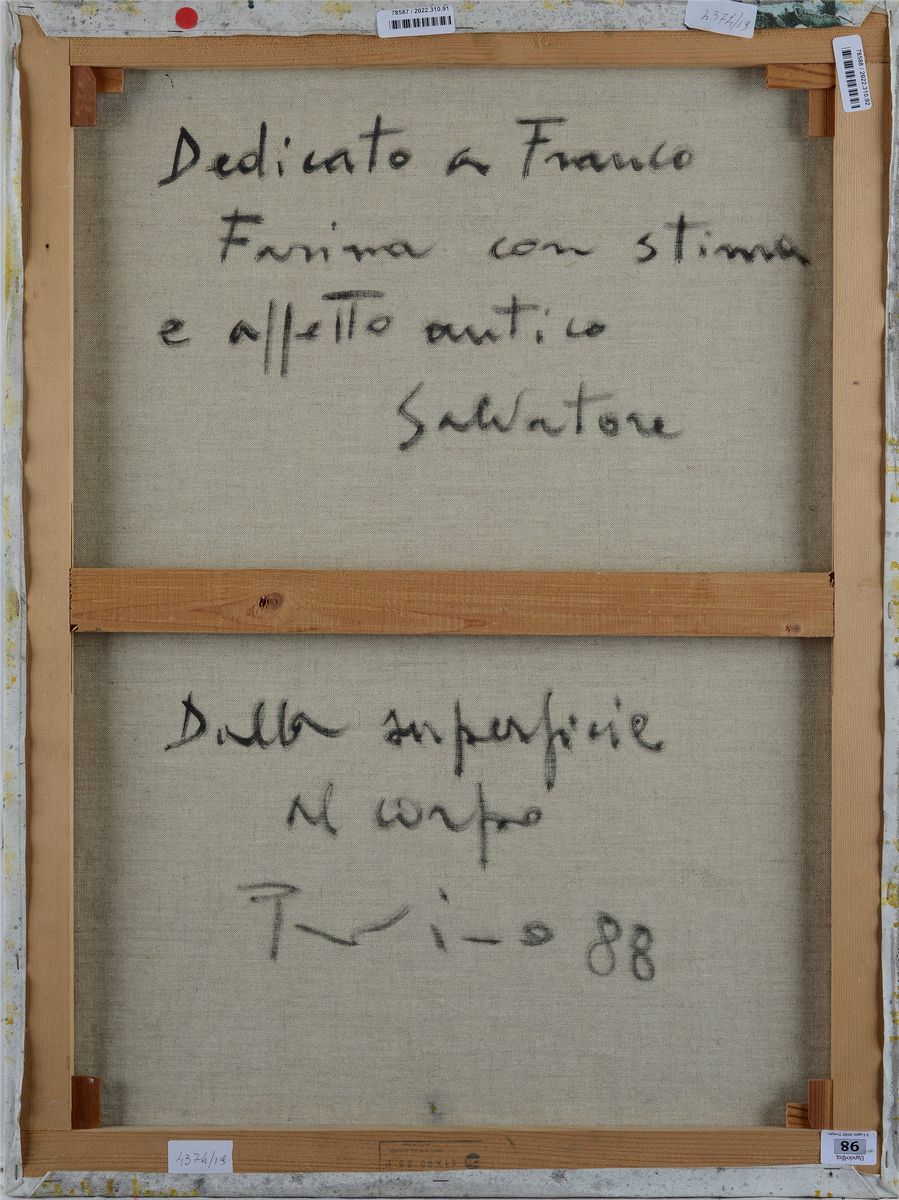 78587 / 2022.310.91
4374/19
78588 / 2022.310.92
Dedicato a Franco
Farina con stima
e affetto antico
Salvatore
Dalla superficie
al corpo
88
4374/19
98